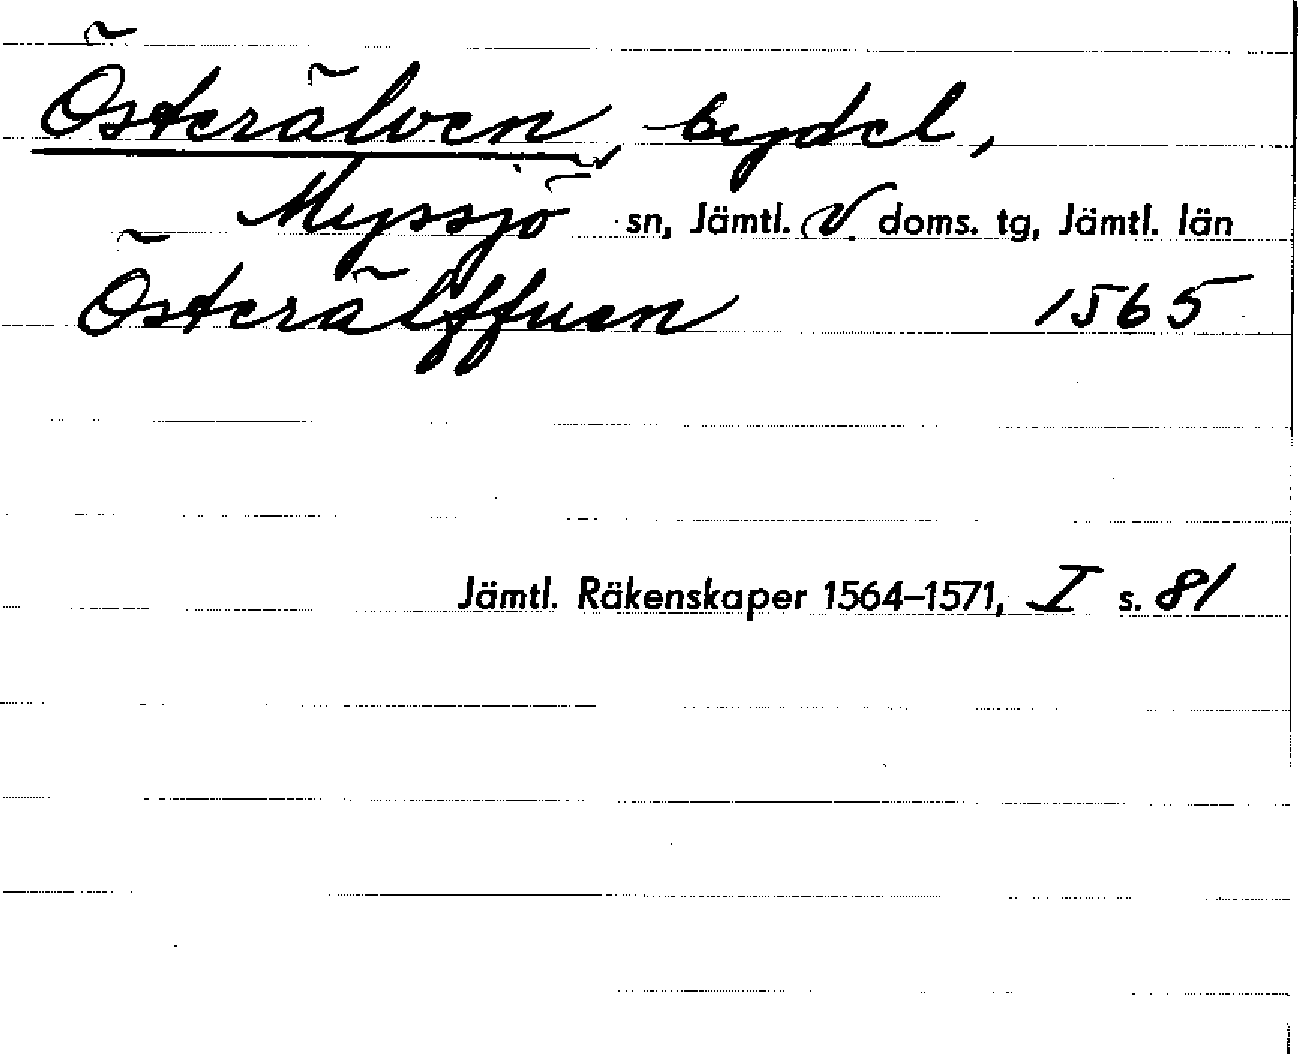 Österälven, bydel,
Myssjö sn, Jämtl. V. doms. tg, Jämtl. län
Österälffuen 1565
Jämtl. Räkenskaper 1564–1571, I s. 81